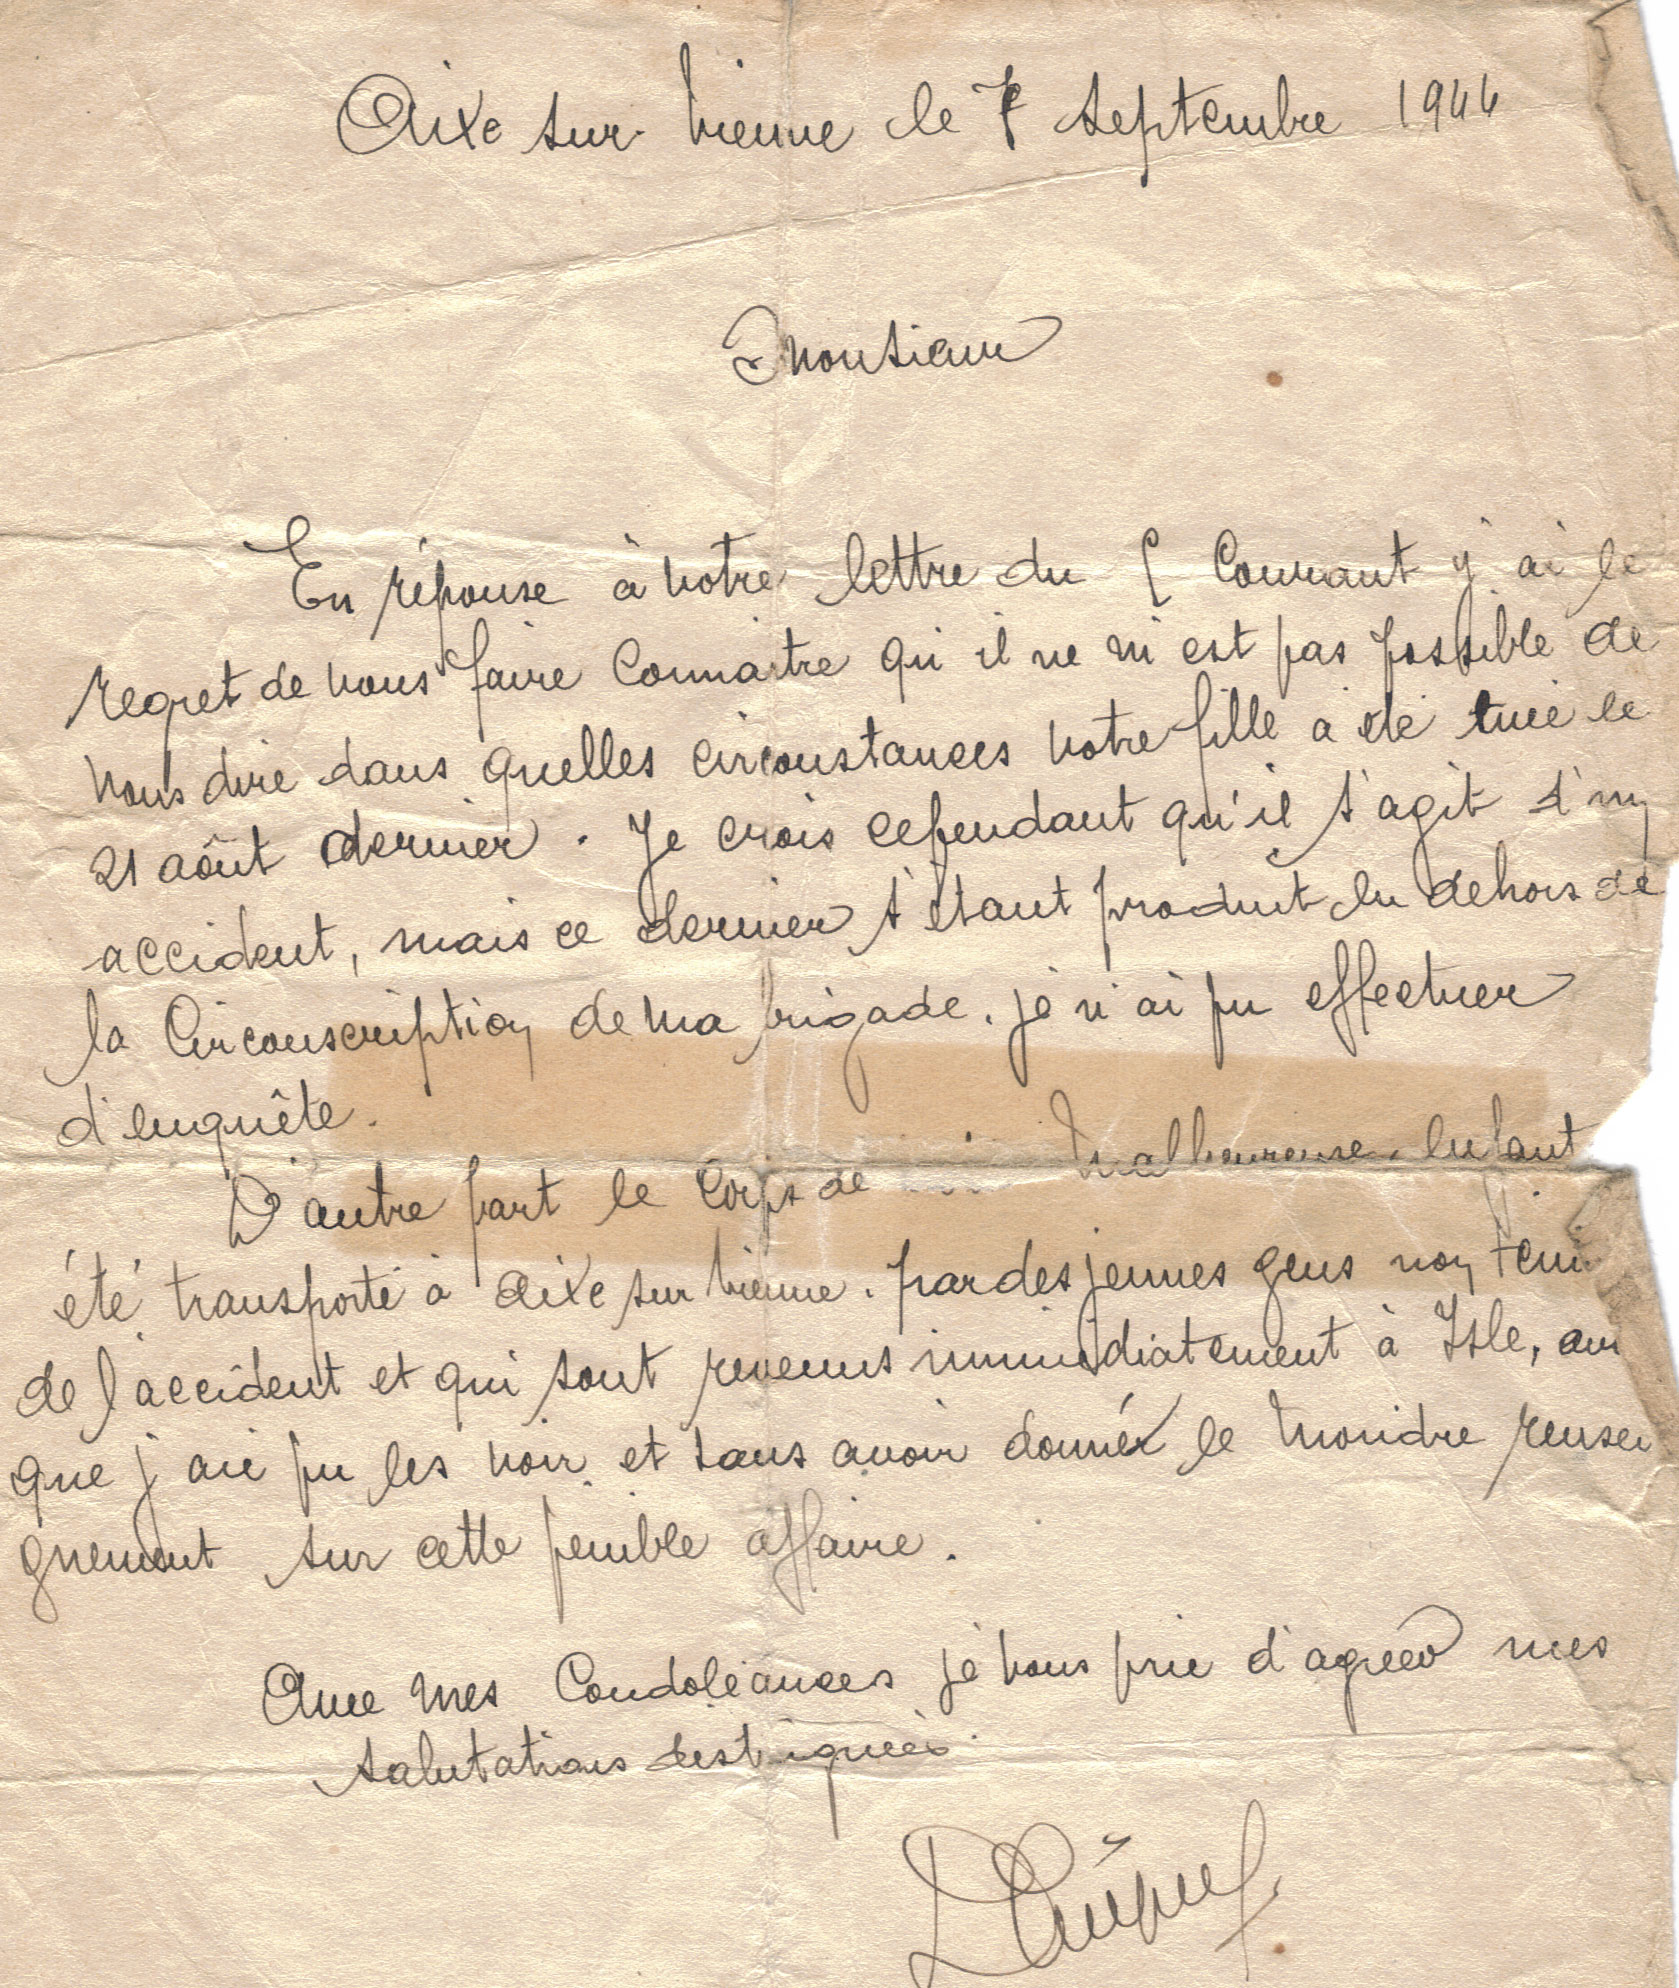 Aixe sur Vienne le 7 Septembre 1944
Monsieur
En réponse à votre lettre du 5 Courant j'ai le
regret de vous faire Connaitre qu'il ne m'est pas possible de
vous dire dans quelles circonstances votre fille a été tuée le
21 août dernier. Je crois cependant qu'il s'agit d'un
accident, mais ce dernier s'étant produit en dehors de
la Circonscription de ma brigade, je n'ai pu effectuer
d'enquête.
D'autre part le Corps de malheureuse enfant
été transporté à Aixe sur Vienne. par des jeunes gens non tem
de l'accident et qui sont revenus immédiatement à Isle,
que j'aie pu les voir et sans avoir donné le moindre rensei
gnement sur cette penible affaire.
Avec mes Condoléances je vous prie d'agréer mes
salutations distinguées.